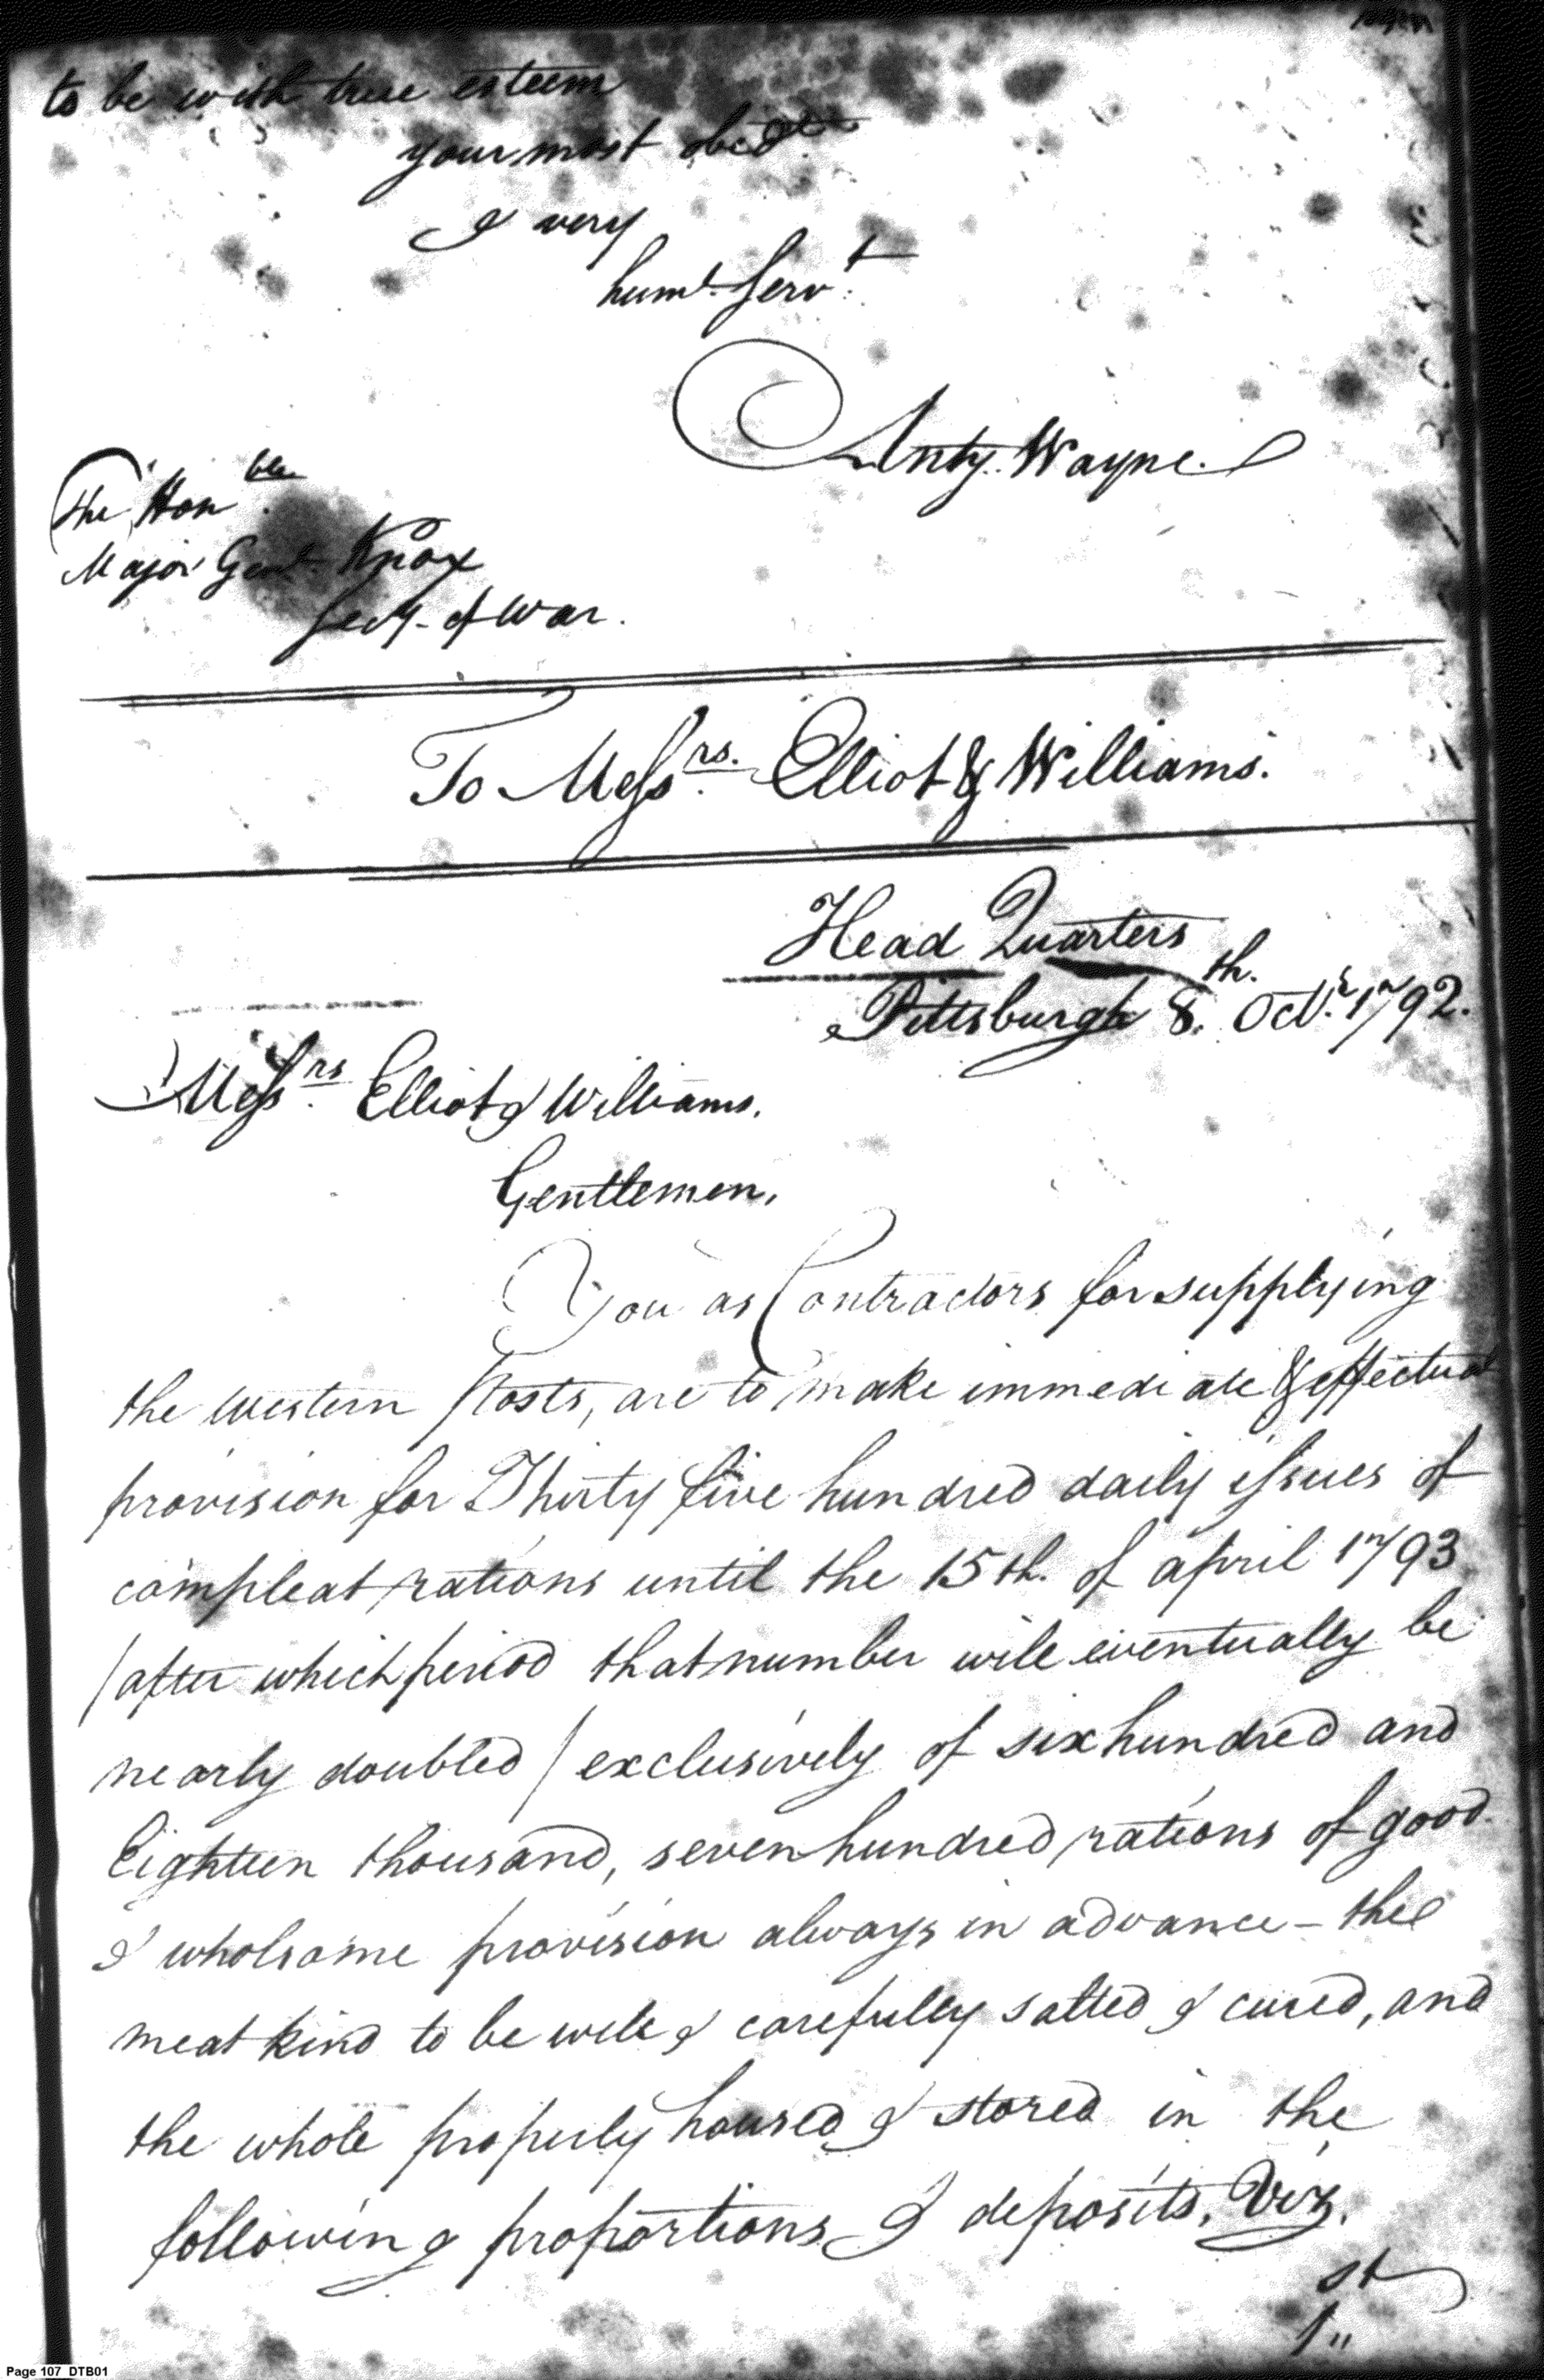 to be with true esteem
your most obedt.
& very
huml. Servt.
Anty. Wayne.
The Honble.
Major Genl. Knox
Secy. of War.
To Messrs. Elliot & Williams.
Head Quarters
Pittsburgh 8th. Octr. 1792.
Messrs. Elliot & Williams.
Gentlemen,
You as Contractors for supplying
the western Posts, are to make immediate & effectual
provision for Thirty five hundred daily issues of
compleat rations until the 15th. of april 1793
/after which period that number will eventually be
nearly doubled/ exclusively of six hundred and
Eighteen thousand, seven hundred rations of good
& wholsome provision always in advance - the
meat kind to be well & carefully salted & cured, and
the whole properly housed & stored in the
following proportions & deposits, Viz.
1st
Page 107 DTB01